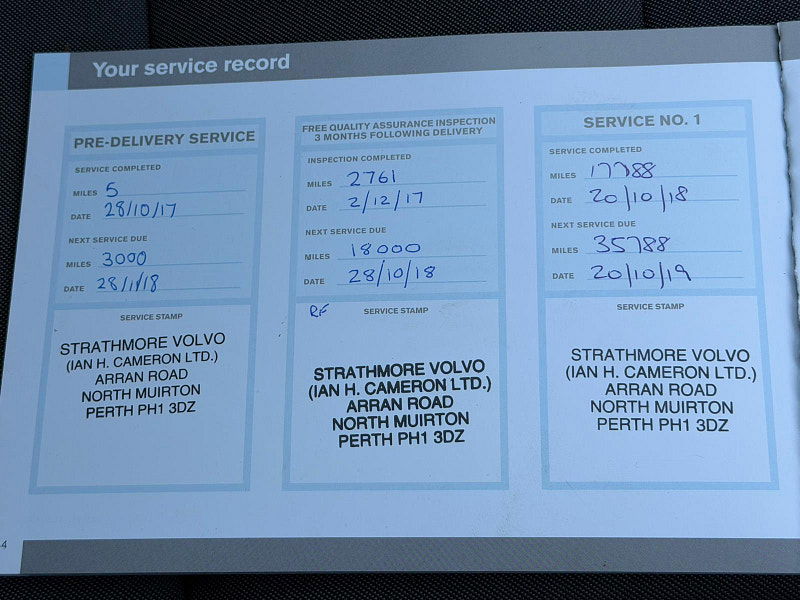 Your service record
PRE-DELIVERY SERVICE
SERVICE COMPLETED
MILES 5
DATE 28/10/17
NEXT SERVICE DUE
MILES 3000
DATE 28/1/18
SERVICE STAMP
STRATHMORE VOLVO
(IAN H. CAMERON LTD.)
ARRAN ROAD
NORTH MUIRTON
PERTH PH1 3DZ
FREE QUALITY ASSURANCE INSPECTION
3 MONTHS FOLLOWING DELIVERY
INSPECTION COMPLETED
MILES 2761
DATE 2/12/17
NEXT SERVICE DUE
MILES 18000
DATE 28/10/18
RF SERVICE STAMP
STRATHMORE VOLVO
(IAN H. CAMERON LTD.)
ARRAN ROAD
NORTH MUIRTON
PERTH PH1 3DZ
SERVICE NO. 1
SERVICE COMPLETED
MILES 17788
DATE 20/10/18
NEXT SERVICE DUE
MILES 35788
DATE 20/10/19
SERVICE STAMP
STRATHMORE VOLVO
(IAN H. CAMERON LTD.)
ARRAN ROAD
NORTH MUIRTON
PERTH PH1 3DZ
4